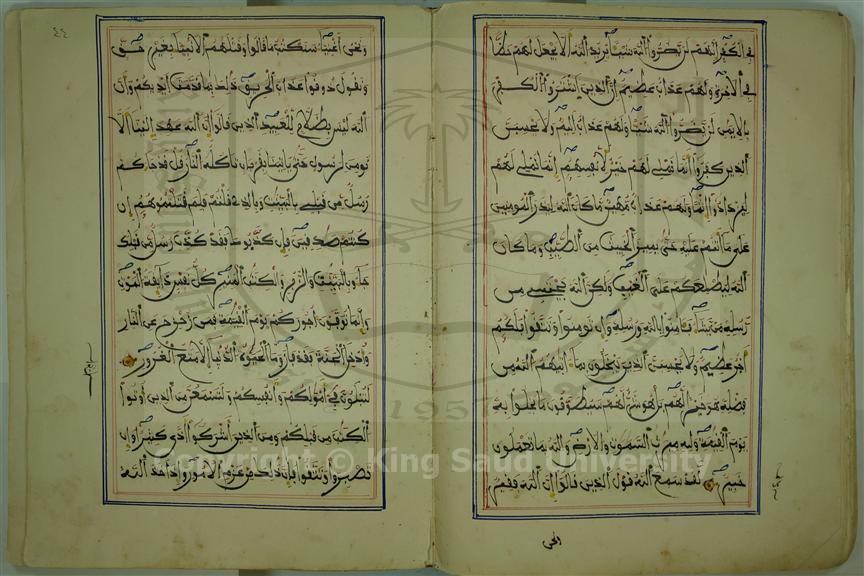 في الكفر انهم لن يضروا الله شيئا يريد الله الا يجعل لهم حظا
في الاخرة ولهم عذاب عظيم ان الذين اشتروا الكفر
بالايمن لن يضروا الله شيئا ولهم عذاب اليم ولا يحسبن
الذين كفروا انما نملي لهم خير لانفسهم انما نملي لهم
ليزدادوا اثما ولهم عذاب مهين ما كان الله ليذر المومنين
على ما انتم عليه حتى يميز الخبيث من الطيب وما كان
الله ليطلعكم على الغيب ولكن الله يجتبي من
رسله من يشاء فامنوا بالله ورسله وان تومنوا وتتقوا فلكم
اجر عظيم ولا يحسبن الذين يبخلون بما اتيهم الله من
فضله هو خيرا لهم بل هو شر لهم سيطوقون ما بخلوا به
يوم القيمة ولله ميرث السموت والارض والله بما تعملون
خبير لقد سمع الله قول الذين قالوا ان الله فقير
٤٤
ونحن اغنيا سنكتب ما قالوا وقتلهم الانبيا بغير حق
ونقول ذوقوا عذاب الحريق ذلك بما قدمت ايديكم وان
الله ليس بظلام للعبيد الذين قالوا ان الله عهد الينا الا
نومن لرسول حتى ياتينا بقربان تاكله النار قل قد جاكم
رسل من قبلي بالبينت وبالذي قلتم فلم قتلتموهم ان
كنتم صدقين فان كذبوك فقد كذب رسل من قبلك
جاو بالبينت والزبر والكتب المنير كل نفس ذايقة الموت
وانما توفون اجوركم يوم القيمة فمن زحزح عن النار
وادخل الجنة فقد فاز وما الحيوة الدنيا الا متع الغرور
لتبلون في امولكم وانفسكم ولتسمعن من الذين اوتوا
الكتب من قبلكم ومن الذين اشركوا اذى كثيرا وان
تصبروا وتتقوا فان ذلك من عزم الامور واذ اخذ الله
1957
Copyright © King Saud University